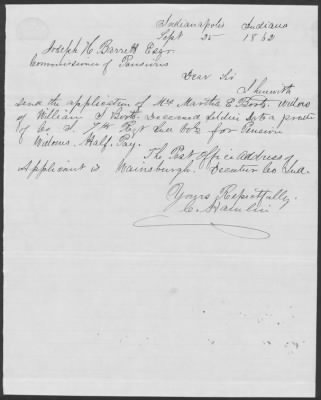 Indianapolis Indiana
Sept 25 1862
Joseph H Barrett Esqr
Commissioner of Pensions
Dear Sir
I herewith
send the application of Mrs Martha E. Booth widow
of William J Booth Deceased Soldier
of Co I. 7th Regt Ind Vols for Pension
Widows Half Pay.
The Post Office address of
Applicant is Waynsburgh. Decatur Co Ind.
Yours Respectfully,
C. Hamlin